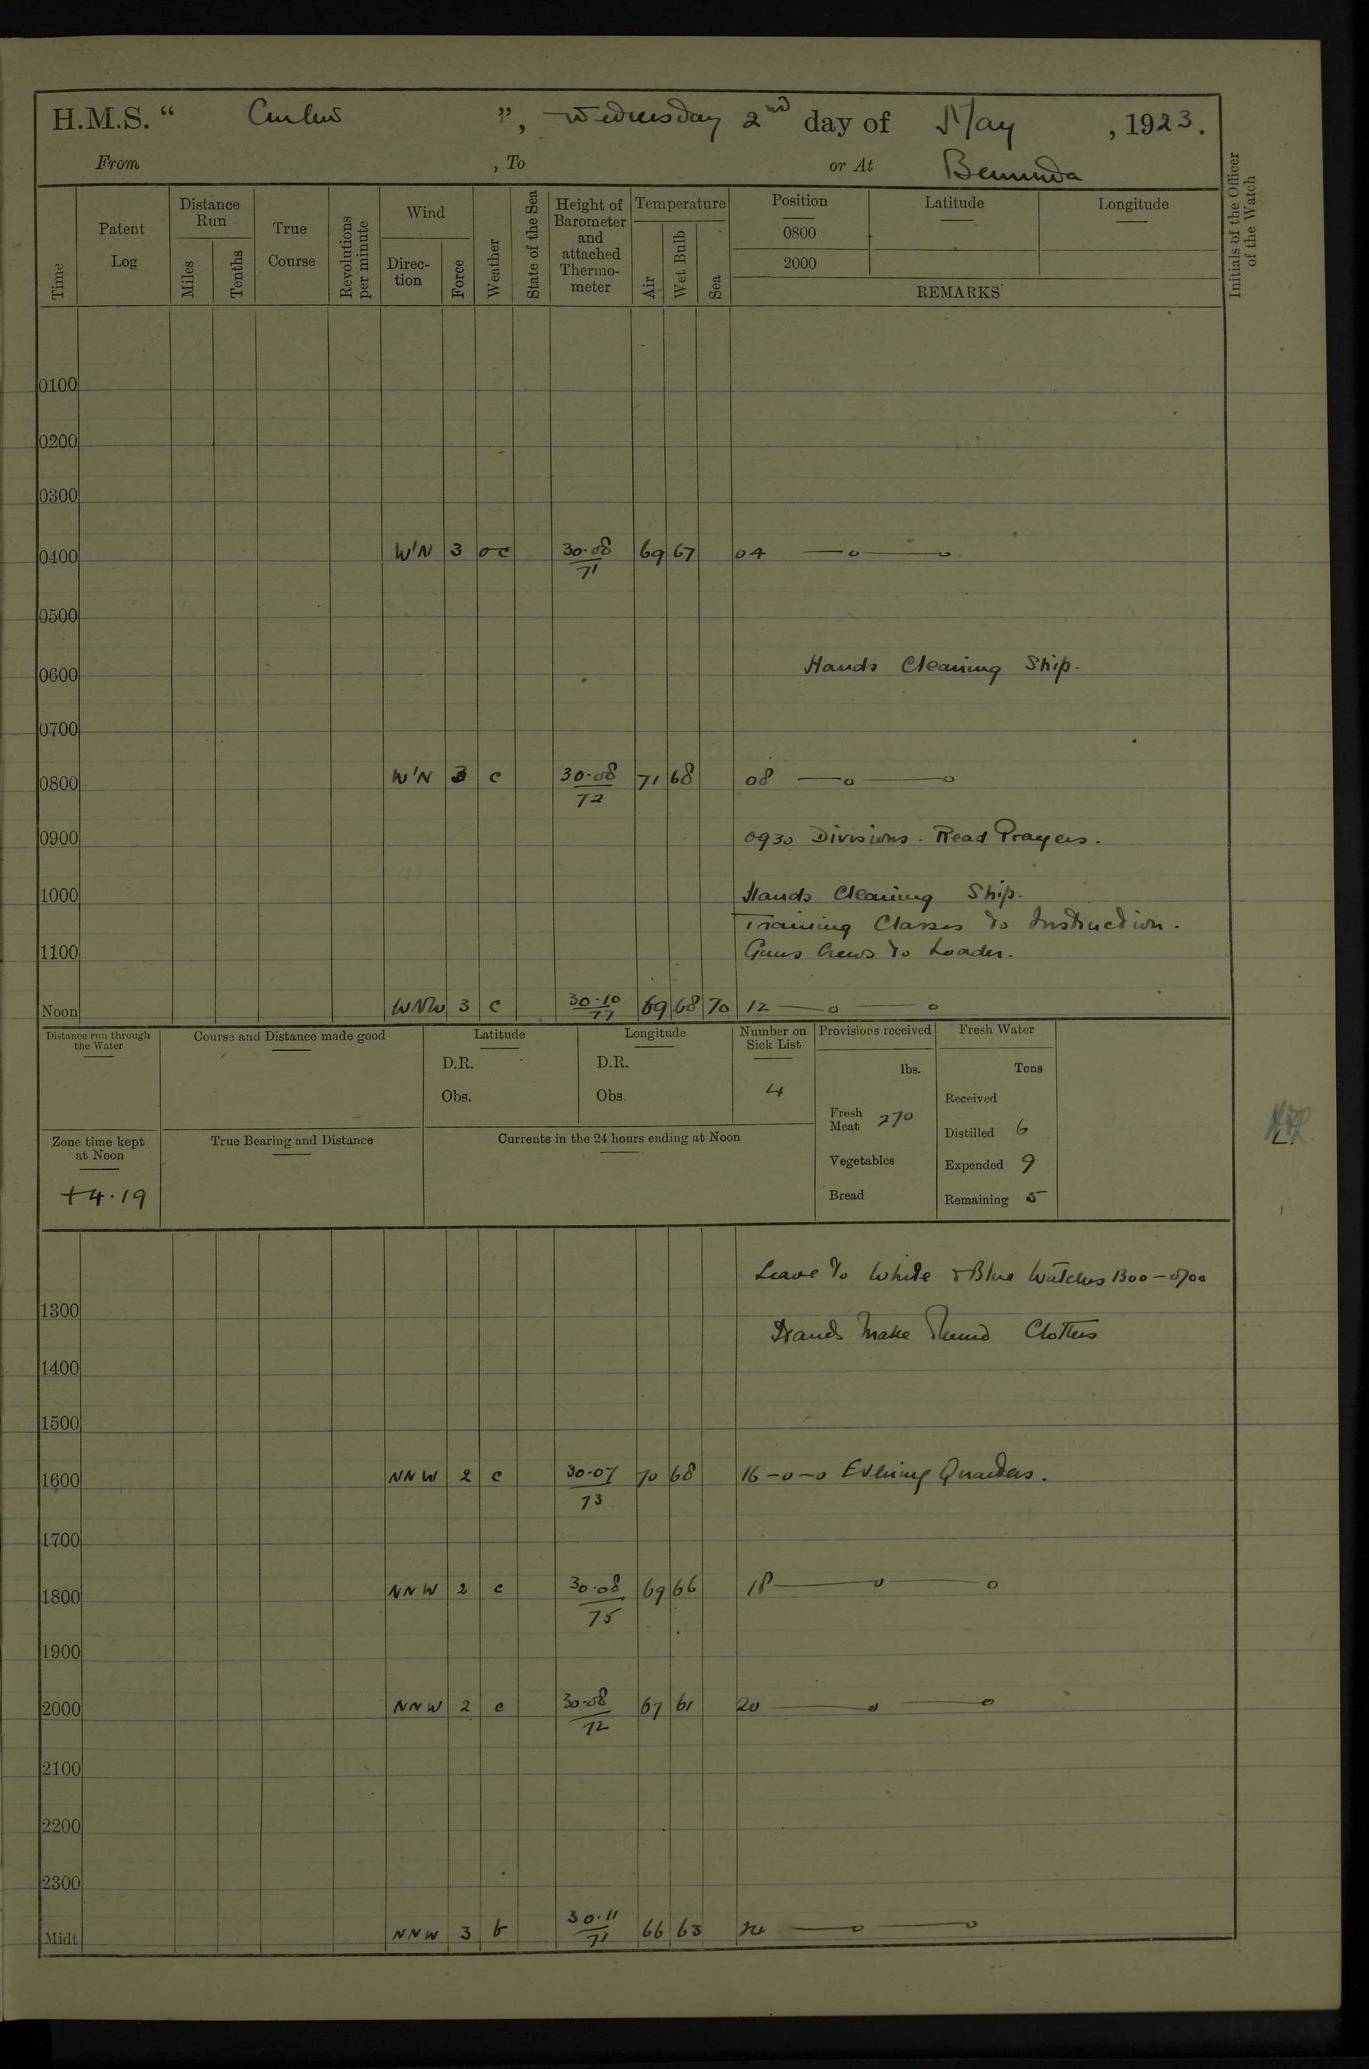 H.M.S. “ Curlew ”, Wednesday 2nd day of May , 1923.
From , To or At Bermuda
Time Patent Log Distance Run Miles Tenths True Course Revolutions per minute Wind Direc-tion Force Weather State of the Sea Height of Barometer and attached Thermo-meter Temperature Air Wet Bulb Sea Position 0800 2000 Latitude Longitude
REMARKS
Initials of the Officer of the Watch
0100
0200
0300
0400 W'N 3 oc 30.08/71 69 67 04 —o—o
0500
0600 Hands Cleaning Ship.
0700
0800 W'N 3 c 30.08/72 71 68 08 —o—o
0900 0930 Divisions. Read Prayers.
1000 Hands Cleaning Ship.
Training Classes to Instruction.
1100 Guns Crews to Loader.
Noon WNW 3 c 30.10/77 69 68 70 12 —o—o
Distance run through the Water
Course and Distance made good
Latitude
D.R.
Obs.
Longitude
D.R.
Obs.
Number on Sick List
4
Provisions received
lbs.
Fresh Meat 270
Vegetables
Bread
Fresh Water
Tons
Received
Distilled 6
Expended 9
Remaining 5
Zone time kept at Noon
+4.19
True Bearing and Distance
Currents in the 24 hours ending at Noon
Leave to White & Blue Watches 1300-0700
1300
Hands Make & Mend Clothes
1400
1500
1600 NNW 2 c 30.07/73 70 68 16 -o-o Evening Quarters.
1700
1800 NNW 2 c 30.08/75 69 66 18 —o—o
1900
2000 NNW 2 c 30.08/72 67 61 20 —o—o
2100
2200
2300
Midt. NNW 3 b 30.11/71 66 63 24 —o—o